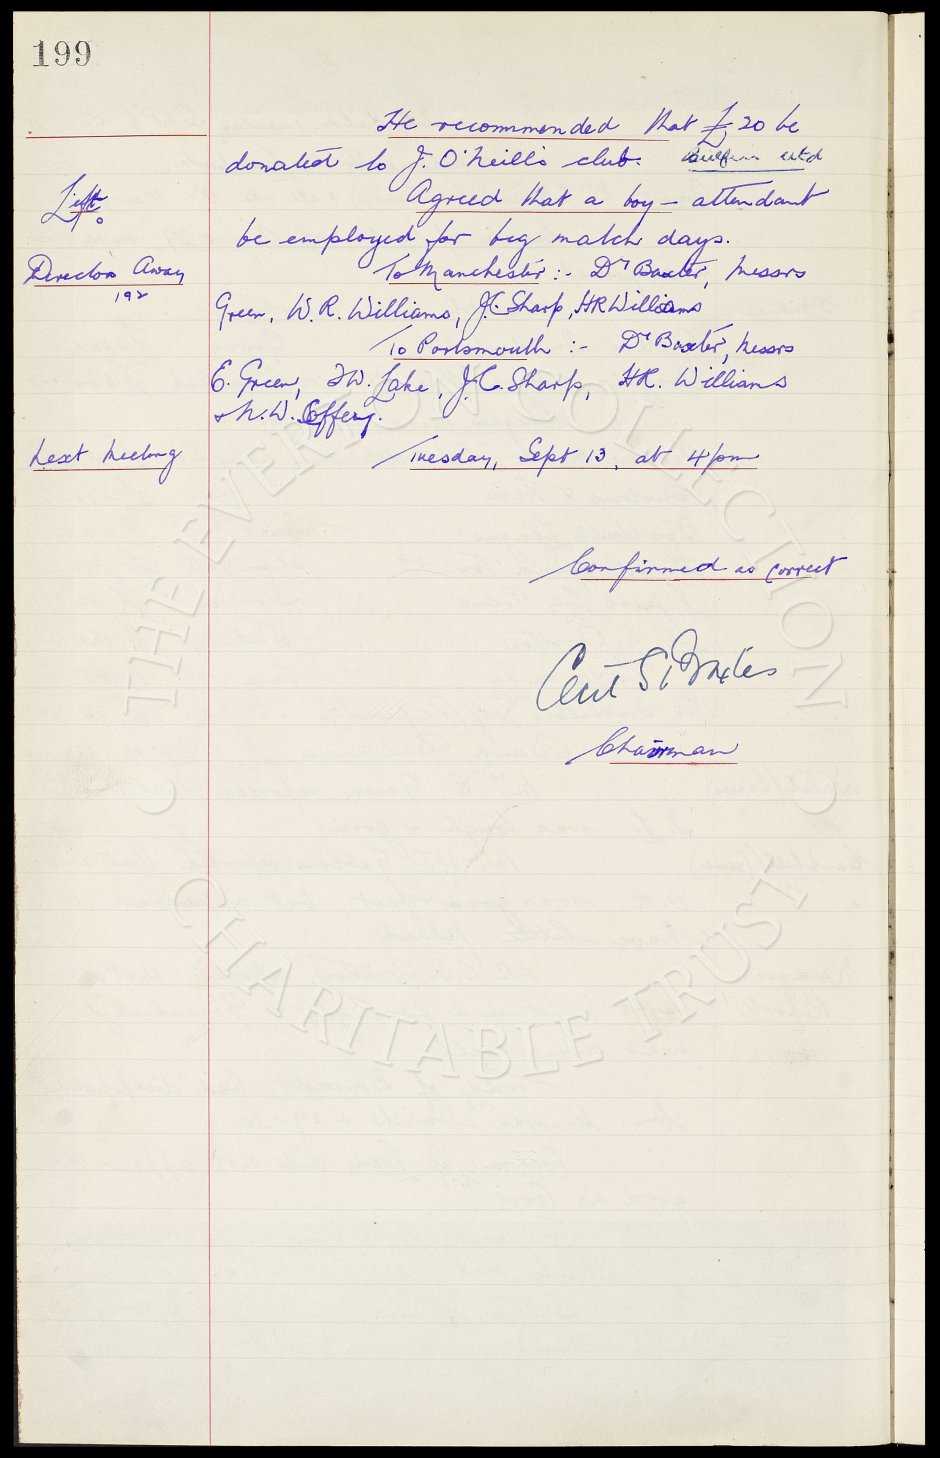 199
He recommended that £20 be
donated to J. O'Neill's club.
Lift. Agreed that a boy-attendant
be employed for big match days.
Directors Away To Manchester :- Dr Baxter, Messrs
192
Green, W. R. Williams, J.C. Sharp, H R Williams
To Portsmouth :- Dr Baxter, Messrs
E. Green, F W. Lake, J.C. Sharp, H R. Williams
& N. W. Coffey.
Next Meeting Tuesday, Sept 13, at 4 pm
Confirmed as correct
Cecil S. Baxter
Chairman
© THE EVERTON COLLECTION ©
CHARITABLE TRUST